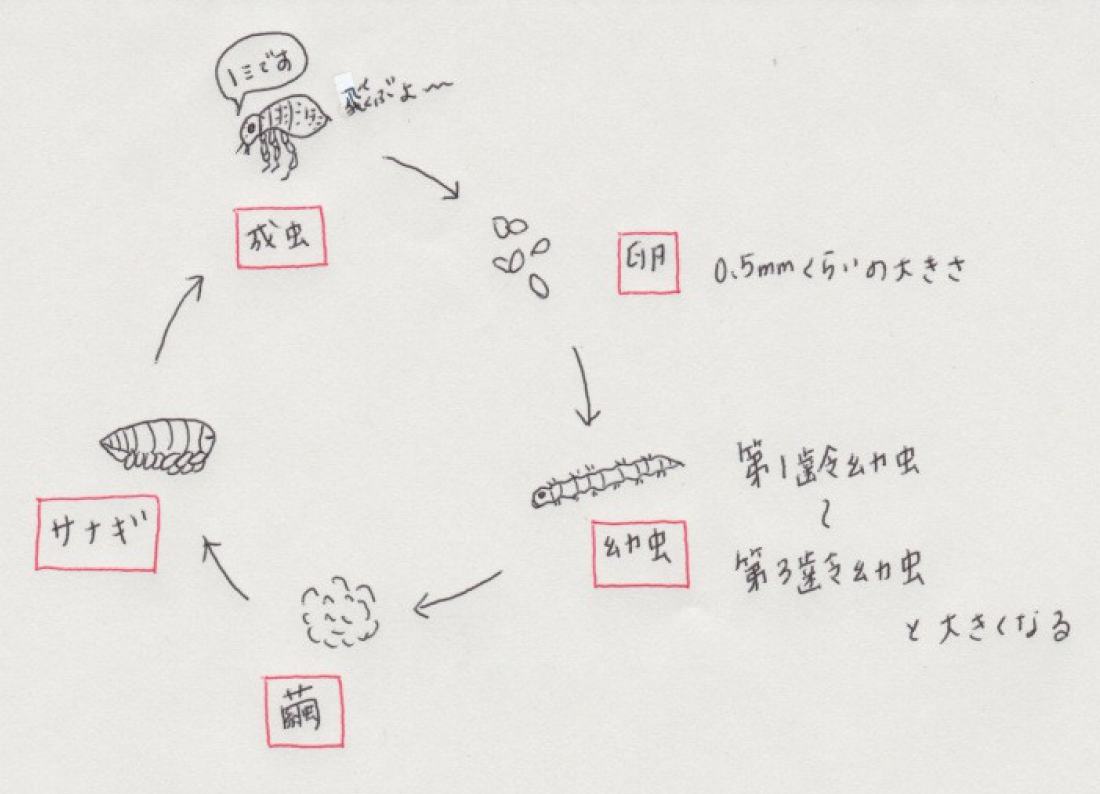 ノミです
飛ぶよ〜
成虫
卵
0.5mmくらいの大きさ
第1齢幼虫
〜
第3齢幼虫
と大きくなる
幼虫
繭
サナギ